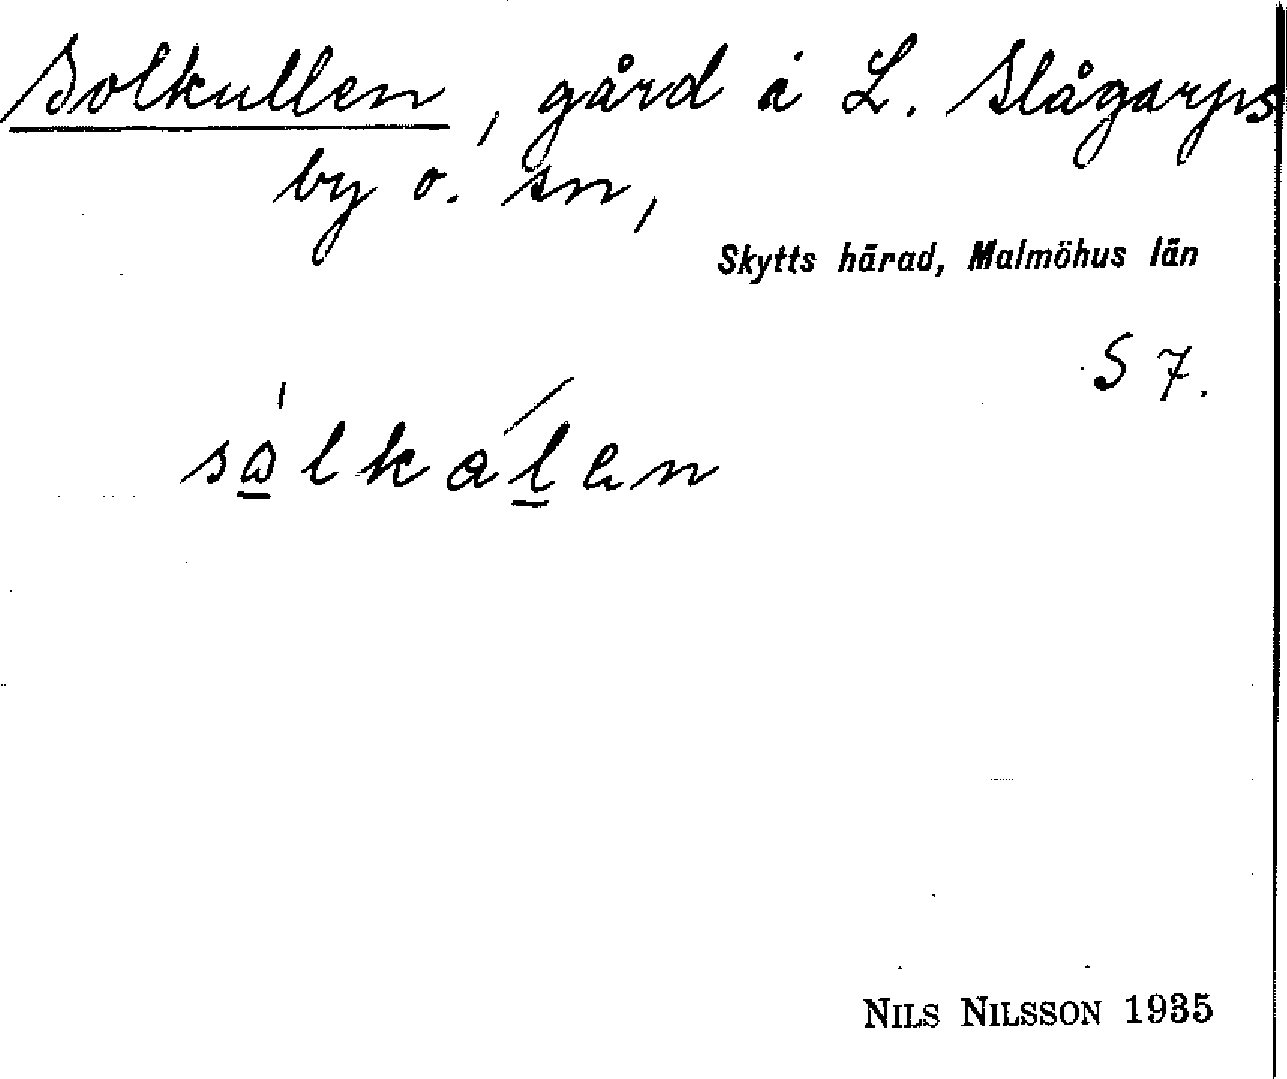 Solkullen, gård å L. Slågarps
by o. sn,
Skytts härad, Malmöhus län
S 7.
NILS NILSSON 1935